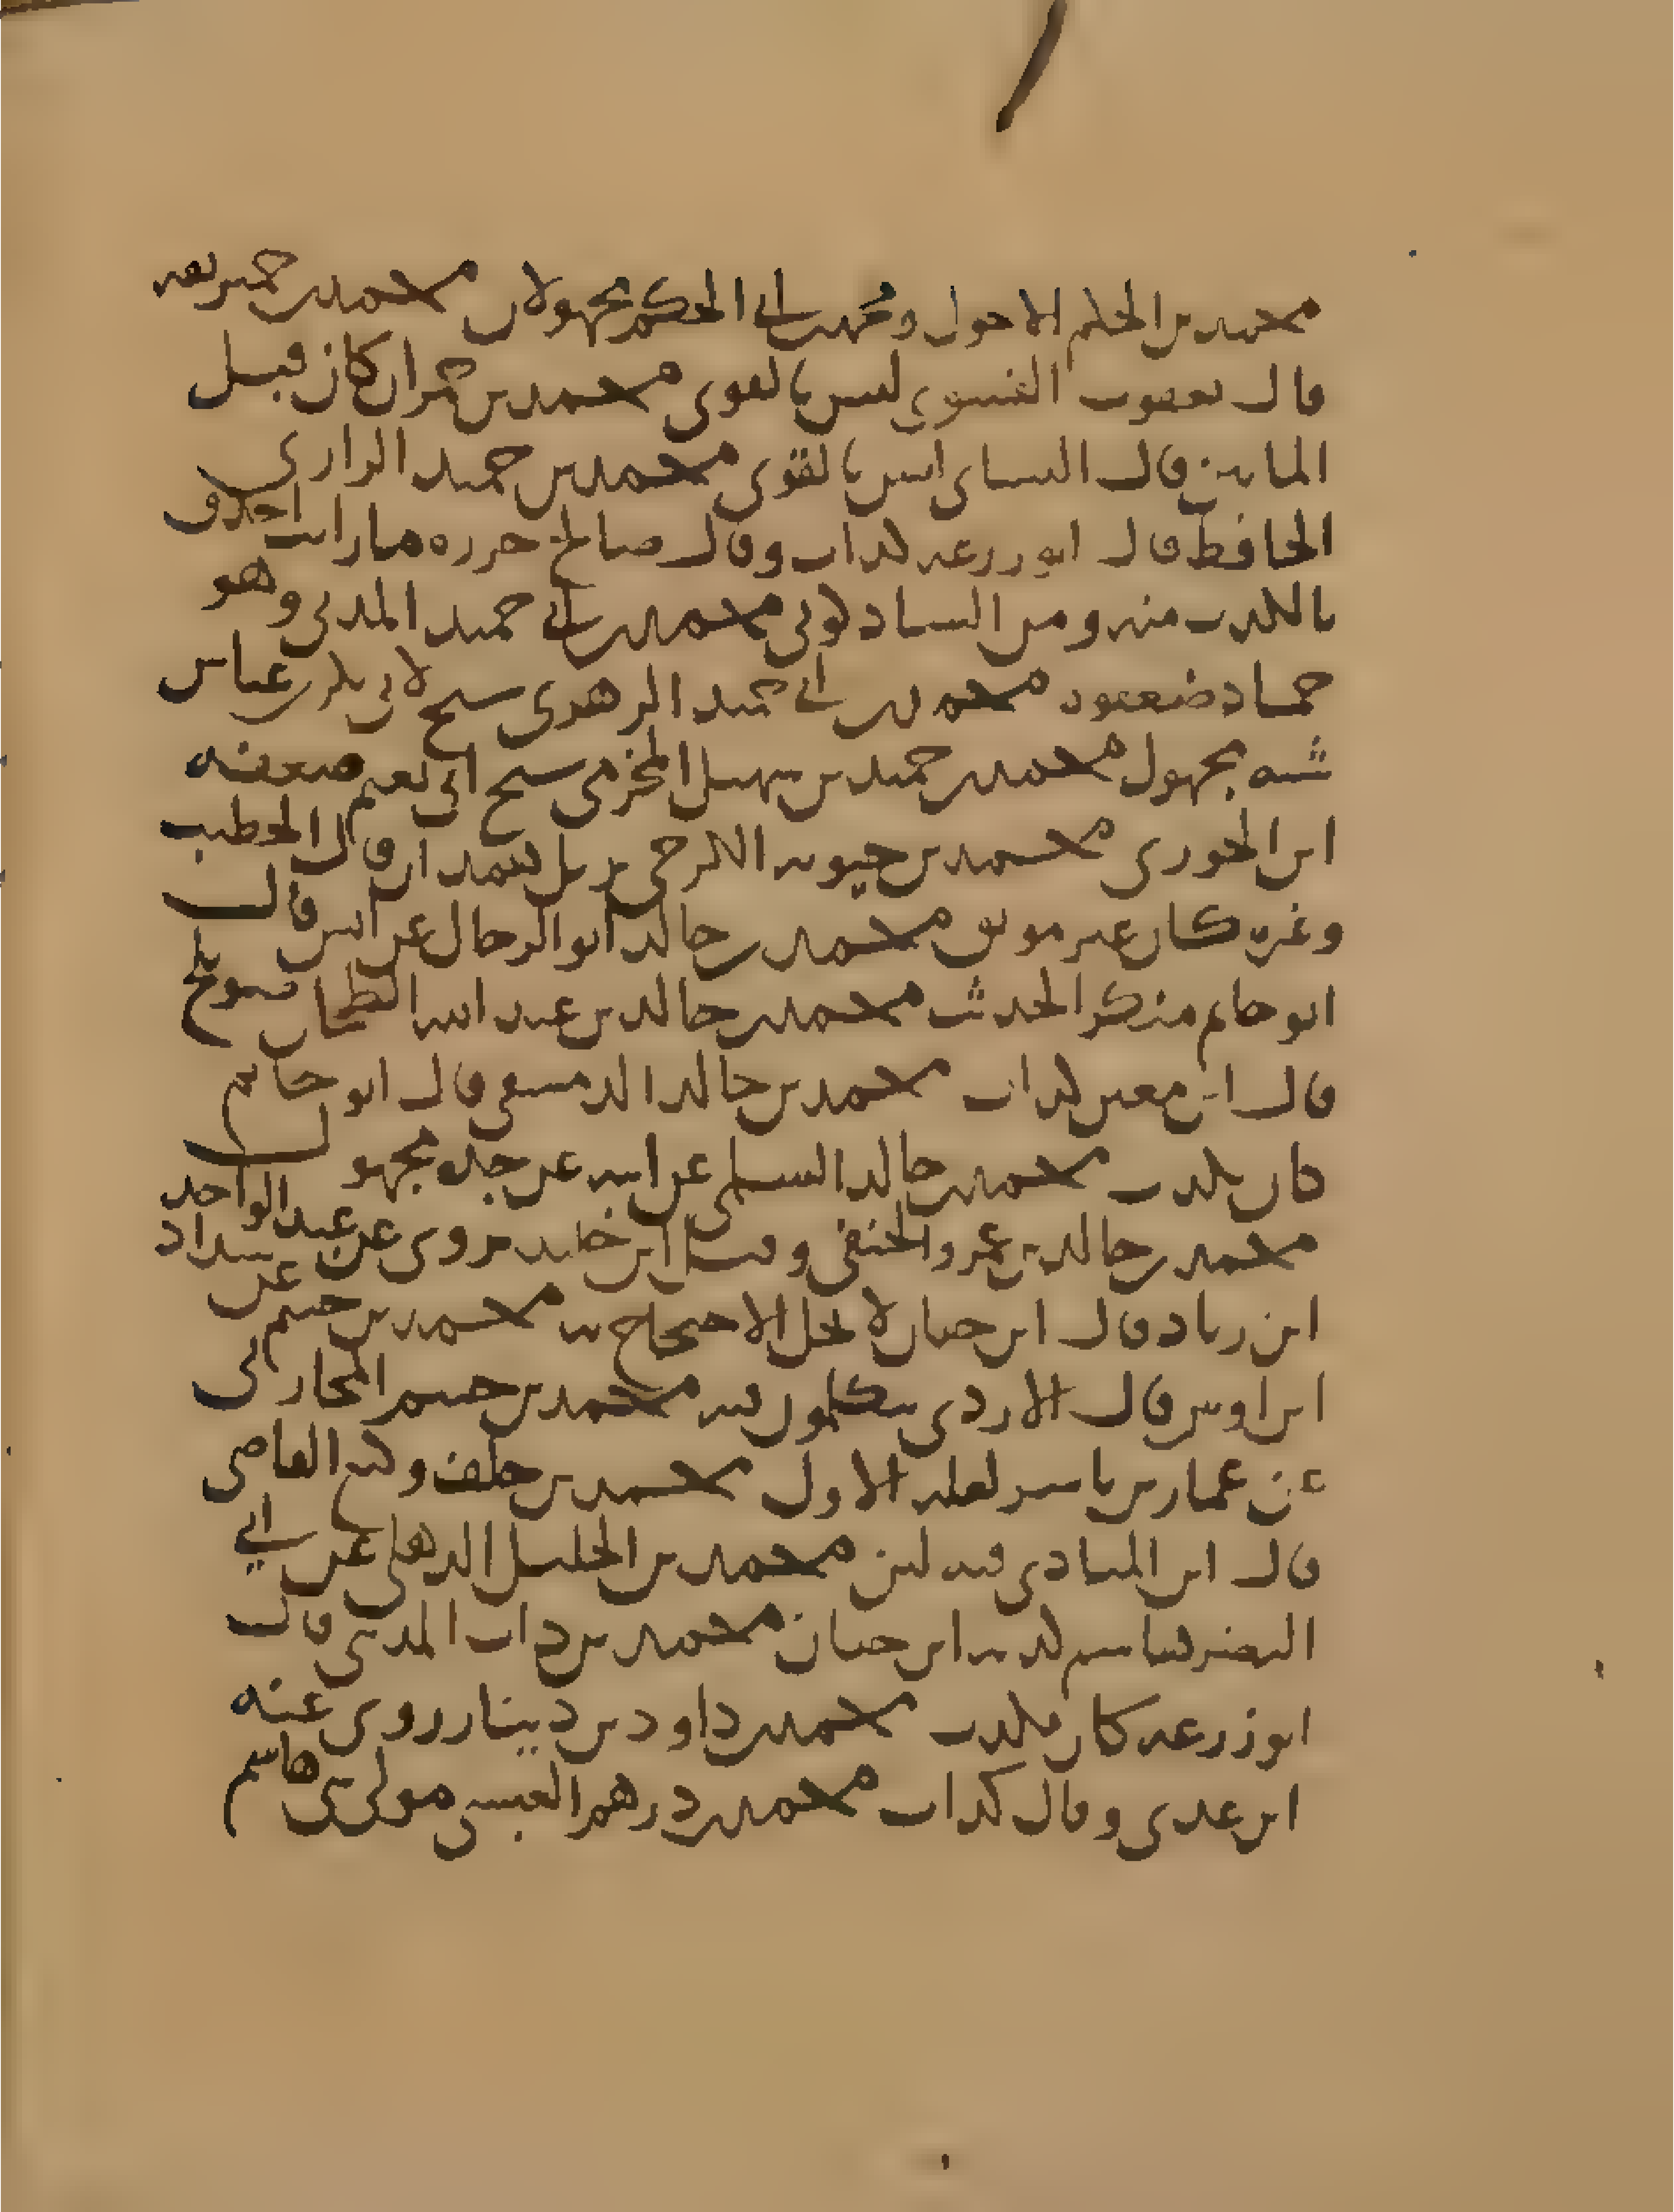 محمد بن الحكم الاحول ومحمد بن ابي الحكم مجهولان محمد بن حمير ثقة
قال يعقوب الفسوي ليس بالقوي محمد بن حمران كان قبيل
المايتين قال النساي ليس بالقوي محمد بن حميد الرازي
الحافظ قال ابو زرعه كذاب وقال صالح جزره ما رايت احذق
بالكذب منه ومن الشاذكوني محمد بن ابي حميد المدني وهو
حماد ضعفوه محمد بن ابي حميد الزهري شيخ لابي بكر بن عياش
شبه مجهول محمد بن حميد بن سهيل المخرمي شيخ ابي نعيم ضعفه
ابن الجوزي محمد بن حيويه الكرجي نزيل همدان قال الخطيب
وغيره كان غير موثق محمد بن خالد ابو الرحال عن انس قال
ابو حاتم منكر الحديث محمد بن خالد بن عبد الله الطحان صويلح
قال ابن معين كذاب محمد بن خالد الدمشقي قال ابو حاتم
كان يكذب محمد بن خالد السلمي عن ابيه عن جده مجهول
محمد بن خالد بن عمرو الحنفي وقيل ابن خليد يروي عن عبد الواحد
ابن زياد قال ابن حبان لا يحل الاحتجاج به محمد بن خثيم عن شداد
ابن اوس قال الازدي يتكلمون فيه محمد بن خثيم المحاربي
عن عمار بن ياسر لعله الاول محمد بن خلف وكيع القاضي
قال ابن المنادي فيه لين محمد بن الخليل الذهلي عن ابي
النضر هاشم كذبه ابن حبان محمد بن داب المديني قال
ابو زرعه كان يكذب محمد بن داود بن دينار روى عنه
ابن عدي وقال كذاب محمد بن درهم العبسي مولى بني هاشم